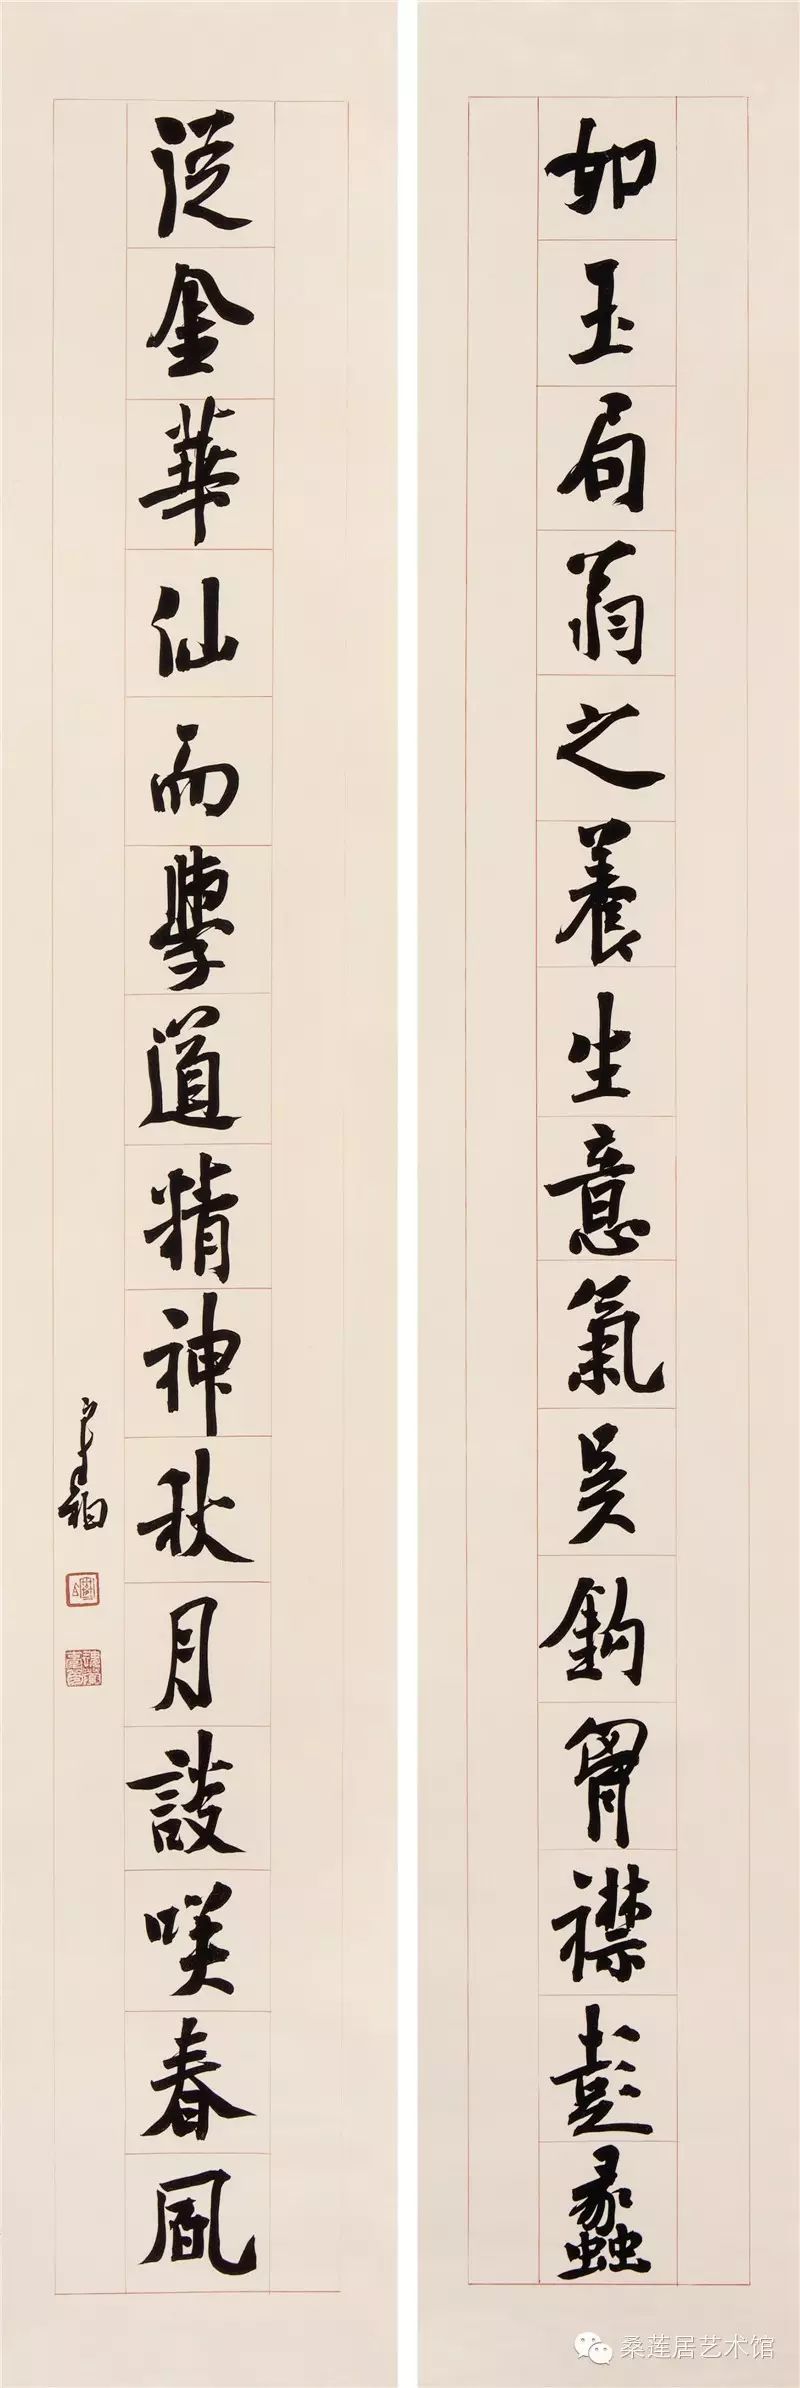 如玉局翁之養生意氣吴鈎胷襟彭蠡
從金華仙而學道精神秋月談咲春風
桑莲居艺术馆